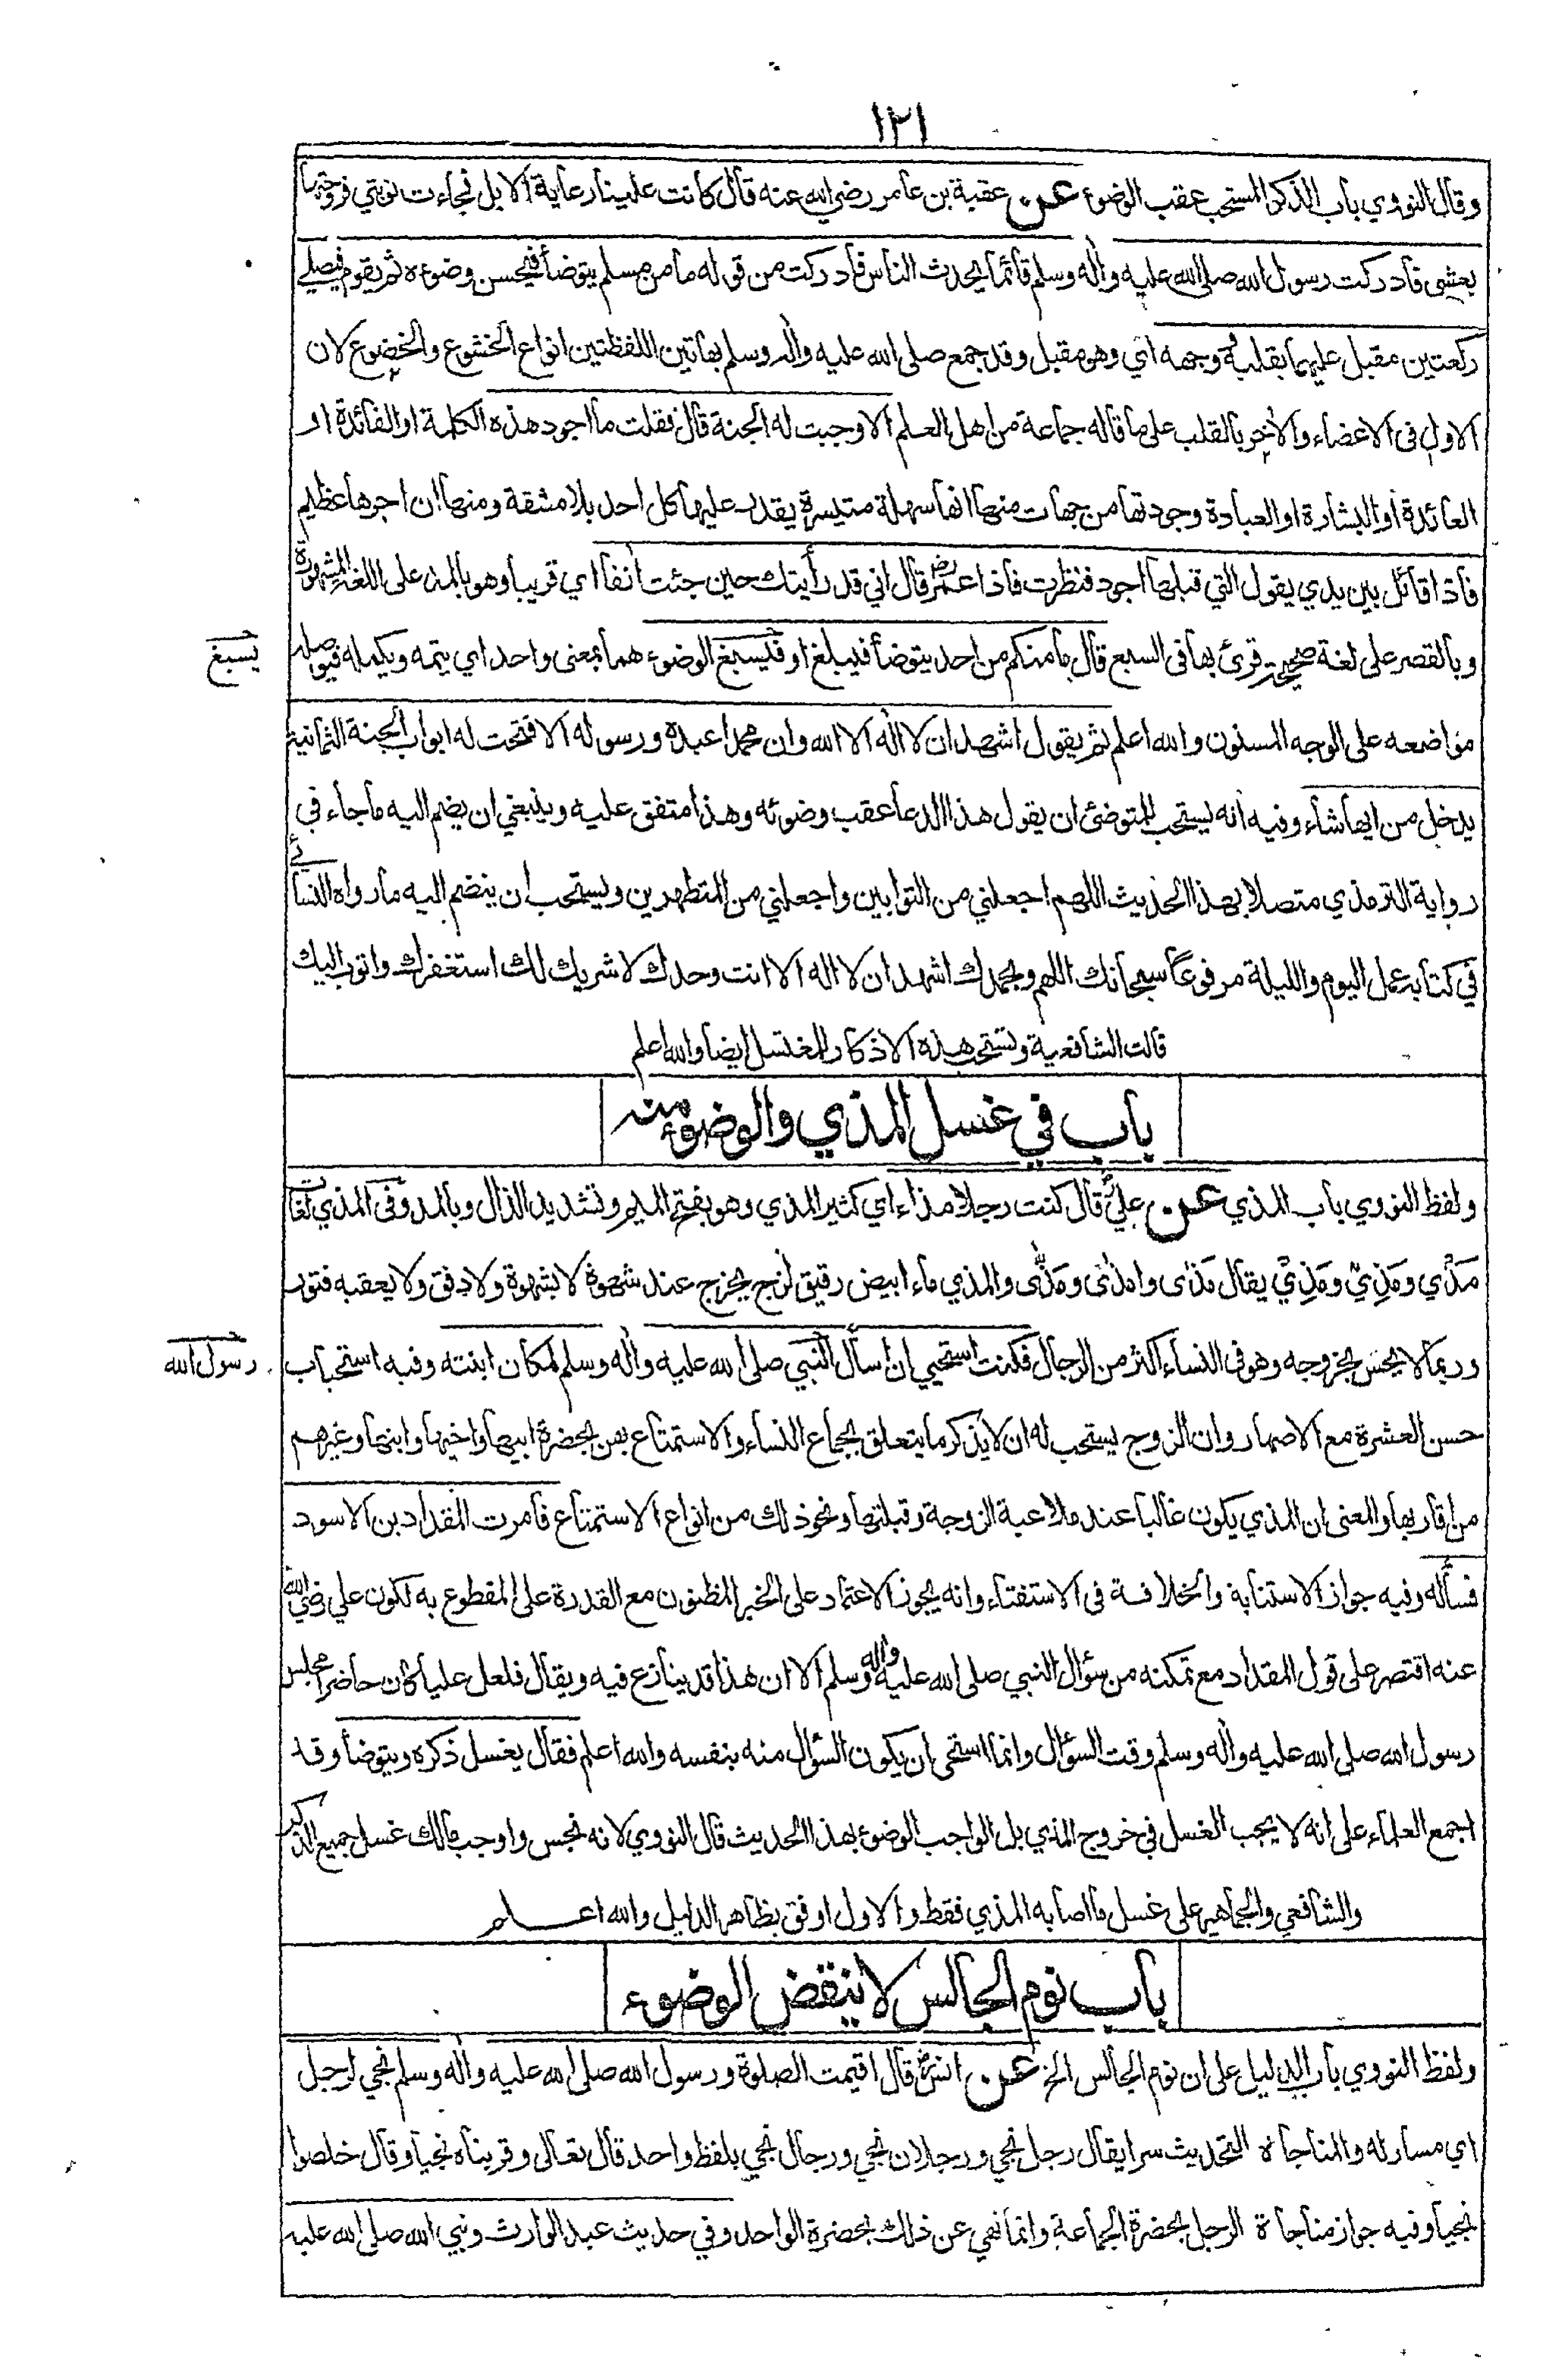 ١٢١
وقال النووي باب الذكر المستحب عقب الوضوء عن عقبة بن عامر رضي الله عنه قال كانت علينا رعاية الابل فجاءت نوبتي فروحتها
بعشي فادركت رسول الله صلى الله عليه واٰله وسلم قائما يحدث الناس فادركت من قوله ما من مسلم يتوضأ فيحسن وضوءه ثم يقوم فيصلي
ركعتين مقبل عليهما بقلبه ووجهه اي وهو مقبل وقد جمع صلى الله عليه واٰله وسلم بهاتين اللفظتين انواع الخشوع والخضوع لان
الاول في الاعضاء والاٰخر بالقلب على ما قاله جماعة من اهل العلم الا وجبت له الجنة قال فقلت ما اجود هذه الكلمة او الفائدة او
العائدة او البشارة او العبادة وجودتها من جهات منها انها سهلة متيسرة يقدر عليها كل احد بلا مشقة ومنها ان اجرها عظيم
فاذا قائل بين يدي يقول التي قبلها اجود فنظرت فاذا عمر رض قال اني قد رأيتك حين جئت اٰنفا اي قريبا وهو بالمد على اللغة المشهورة
وبالقصر على لغة صحيحة قرئ بها في السبع قال ما منكم من احد يتوضأ فيبلغ او فيسبغ الوضوء هما بمعنى واحد اي يتمه ويكمله فيوصله
يسبغ
مواضعه على الوجه المسنون والله اعلم ثم يقول اشهد ان لا اله الا الله وان محمدا عبده ورسوله الا فتحت له ابواب الجنة الثمانية
يدخل من ايها شاء وفيه انه يستحب للمتوضئ ان يقول هذا الدعا عقب وضوئه وهذا متفق عليه وينبغي ان يضم اليه ما جاء في
رواية الترمذي متصلا بهذا الحديث اللهم اجعلني من التوابين واجعلني من المتطهرين ويستحب ان ينضم اليه ما رواه النسائي
في كتابه عمل اليوم والليلة مرفوعا سبحانك اللهم وبحمدك اشهد ان لا اله الا انت وحدك لا شريك لك استغفرك واتوب اليك
قالت الشافعية وتستحب هذه الاذكار للمغتسل ايضا والله اعلم
باب في غسل المذي والوضوء منه
ولفظ النووي باب المذي عن علي قال كنت رجلا مذاء اي كثير المذي وهو بفتح الميم وتشديد الذال وبالمد وفي المذي لغات
مَذْي ومَذِيّ ومَذِيْ يقال مَذَى وامذى ومَذَّى والمذي ماء ابيض رقيق لزج يخرج عند شهوة لا بشهوة ولا دفق ولا يعقبه فتور
وربما لا يحس بخروجه وهو في النساء اكثر من الرجال فكنت استحيي ان اسأل النبي صلى الله عليه واٰله وسلم لمكان ابنته وفيه استحباب
رسول الله
حسن العشرة مع الاصهار وان الزوج يستحب له ان لا يذكر ما يتعلق بجماع النساء والاستمتاع بهن بحضرة ابيها واخيها وابنها وغيرهم
من اقاربها والمعنى ان المذي يكون غالبا عند ملاعبة الزوجة وقبلتها ونحو ذلك من انواع الاستمتاع فامرت المقداد بن الاسود
فسأله وفيه جواز الاستنابة والخلافة في الاستفتاء وانه يجوز الاعتماد على الخبر المظنون مع القدرة على المقطوع به لكون علي رضي الله
عنه اقتصر على قول المقداد مع تمكنه من سؤال النبي صلى الله عليه واٰله وسلم الا ان هذا قد ينازع فيه ويقال فلعل عليا كان حاضرا مجلس
رسول الله صلى الله عليه واٰله وسلم وقت السؤال وانما استحى ان يكون السؤال منه بنفسه والله اعلم فقال يغسل ذكره ويتوضأ وقد
اجمع العلماء على انه لا يجب الغسل في خروج المذي بل الواجب الوضوء بهذا الحديث قال النووي لانه نجس واوجب مالك غسل جميع الذكر
والشافعي والجماهير على غسل ما اصابه المذي فقط والاول اوفق بظاهر الدليل والله اعلم
باب نوم الجالس لا ينقض الوضوء
ولفظ النووي باب الدليل على ان نوم الجالس الخ عن انس رض قال اقيمت الصلوة ورسول الله صلى الله عليه واٰله وسلم نجي لرجل
اي مسار له والمناجاة التحديث سرا يقال رجل نجي ورجلان نجي ورجال نجي بلفظ واحد قال تعالى وقربناه نجيا وقال خلصوا
نجيا وفيه جواز مناجاة الرجل بحضرة الجماعة وانما نهي عن ذلك بحضرة الواحد وفي حديث عبد الوارث ونبي الله صلى الله عليه